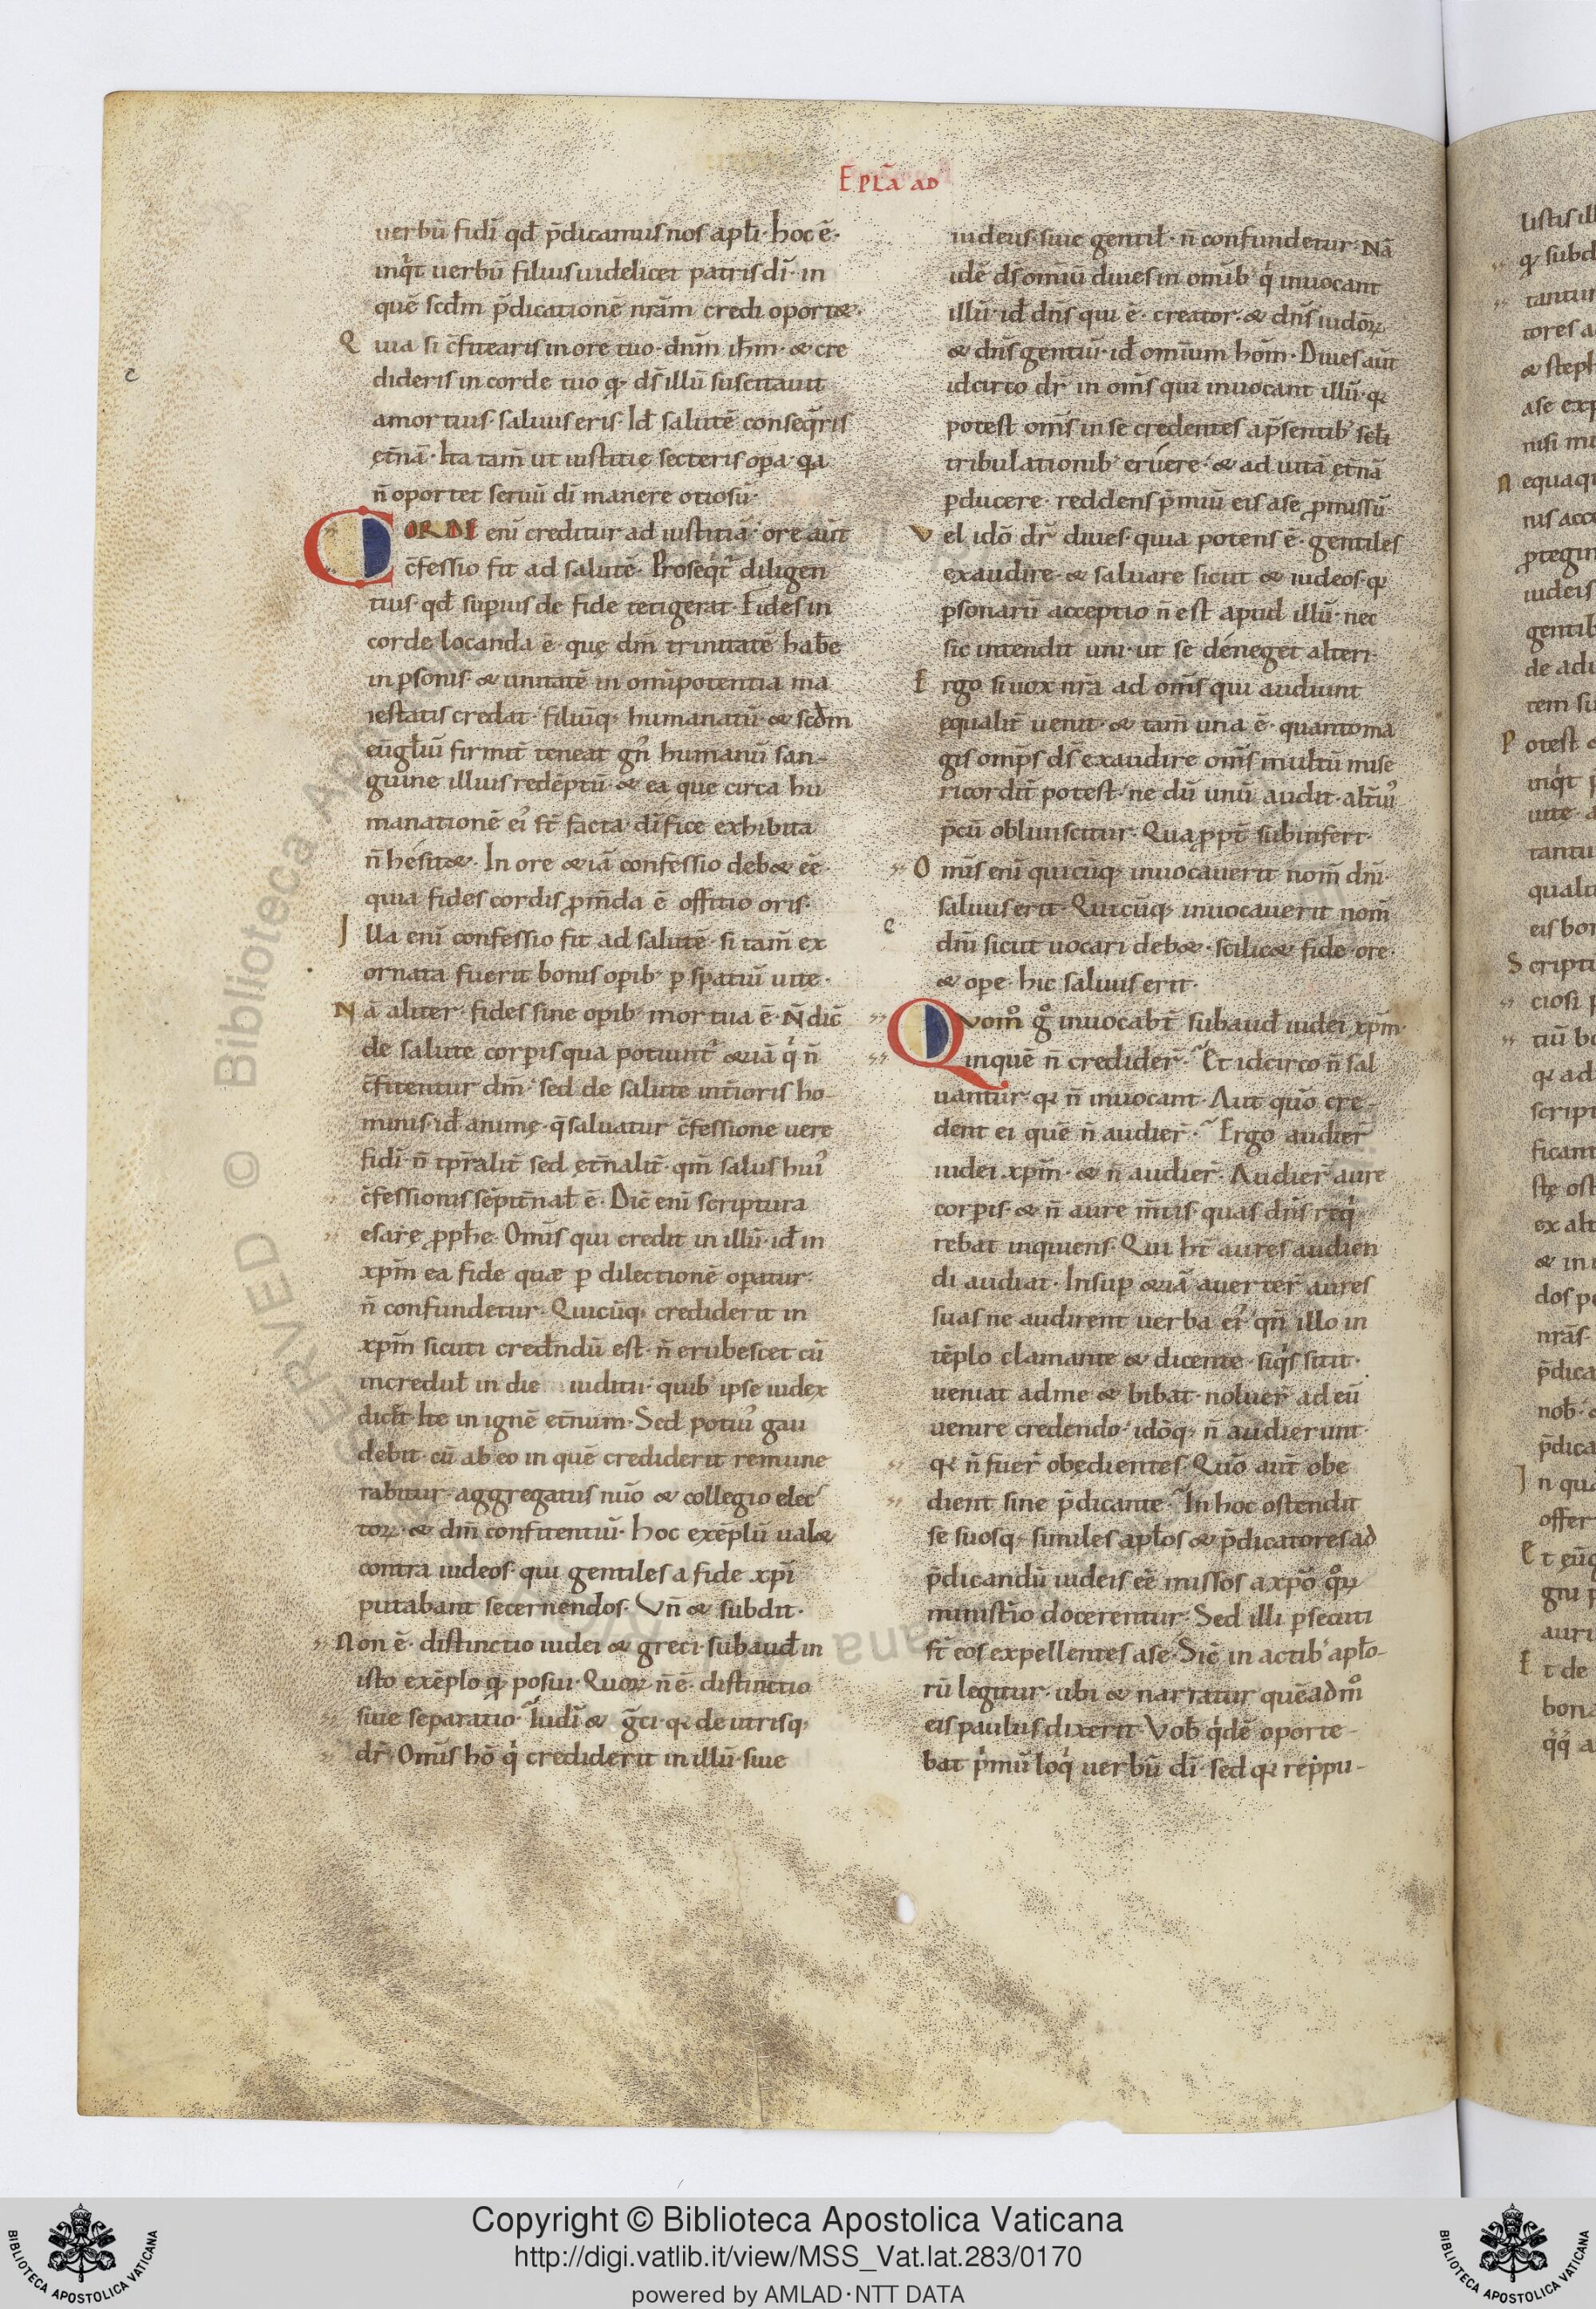 Epła ad
uerbū fidī qđ p̄dicamus nos apłi· hoc ē·
inqͥt uerbū filius uidelicet patris dī· in
quē scđm p̄dicationē nr̄am credi oport&·
Quia si c̄fitearis in ore tuo· dnm̄ ihm̄· & cre
dideris in corde tuo qꝛ ds̄ illū suscitauit
a mortuis· saluus eris· Id̄ salutē conseq̄ris
ęt̄nā· Ita tam̄ ut iustitię secteris oꝑa· qa
n̄ oportet seruū dī manere otiosū·
CORDE enī creditur ad iustitiā· ore aūt
c̄fessio fit ad salutē· Proseqͥt᷑ diligen
tius· qđ suꝑius de fide tetigerat· Fides in
corde locanda ē· quę dm̄ trinitatē habe
in ꝑsonis· & unitatē in omīpotentia ma
iestatis credat· filiūq; humanatū· & scđm
eūgłiū firmit̄ teneat gn᷒ humanū san-
guine illius redēptū· & ea que circa hu
manationē ei᷒ st̄ facta· dīfice exhibita
n̄ hesit&· In ore &iā confessio deb& eē·
quia fides cordis ꝓm̄da ē offitio oris·
Illa enī confessio fit ad salutē· si tam̄ ex
ornata fuerit bonis oꝑib᷒ ꝑ spatiū uite·
Nā aliter· fides sine oꝑib᷒ mortua ē· N̄ dic̄
de salute corꝑis qua potiunt᷑ &iā qͥ n̄
c̄fitentur dm̄· sed de salute int̄ioris ho-
minis· id̄ animę· q̄ saluatur c̄fessione uere
fidī· n̄ tp̄ralit̄ sed ęt̄nalit̄· qm̄ salus hui᷒
c̄fessionis sēpit̄nał ē· Dic̄ enī scriptura
esaię ꝓphe· Omīs qui credit in illū· id̄ in
xpm̄ ea fide quæ ꝑ dilectionē oꝑatur·
n̄ confundetur· Quicūq; crediderit in
xpm̄ sicuti credn̄dū est· n̄ erubescet cū
increduł in die iuditii· quib᷒ ipse iudex
dict̄· Ite in ignē et̄num· Sed poti᷒ gau
debit· cū ab eo in quē crediderit remune
rabitur· aggregatus nūo & collegio elec
toꝝ· & dm̄ confitentiū· Hoc exēplū ual&
contra iudeos· qui gentiles a fide xpī
putabant secernendos· Vn̄ & subdit·
Non ē· distinctio iudei & greci· subaud̄ in
isto exēplo qđ posui· Quoꝝ n̄ ē· distinctio
siue separatio· Iudī & gͣci· qꝛ de utrisq;
dr̄· Omīs hō qͥ crediderit in illū· siue
iudeus· siue gentił· n̄ confundetur· Nā
idē ds̄ omiū diues in omīb᷒ qͥ inuocant
illū· id̄ dn̄s qui ē· creator· & dn̄s iudōꝝ
& dn̄s gentiū· id̄ omium hōm· Diues aūt
idcirco dr̄ in om̄s qui inuocant illū· qꝛ
potest om̄s in se credentes a p̄sentib᷒ scłi
tribulationib᷒ eruere· & ad uitā ęt̄nā
ꝑducere· reddens p̄miū eis a se ꝓmissū·
Vel idō dr̄ diues· quia potens ē· gentiles
exaudire· & saluare sicut & iudeos· qꝛ
ꝑsonarū acceptio n̄ est apud illū· nec
sic intendit uni· ut se déneget alteri·
Ergo si uox nr̄a ad om̄s qui audiunt
ęqualit̄ uenit· & tam̄ una ē· quanto ma
gis omp̄s ds̄ exaudire om̄s multū mise
ricordit̄ potest· ne dū unū audit· alt̄i᷒
p̄cū obliuiscitur· Qua ꝓpt̄ subinfert·
Omīs enī quicūq; inuocauerit nom̄ dnī·
saluus erit· Quicūq; inuocauerit nom̄
dnī sicut uocari deb&· scilic& fide· ore·
& oꝑe· hic saluus erit·
Quomͦ gͦ inuocabt̄ subaud̄ iudei xpm̄·
in quē n̄ credider̄· Et idcirco n̄ sal
uantur· qꝛ n̄ inuocant· Aut quō cre-
dent ei quē n̄ audier̄· Ergo audier̄
iudei xpm̄· & n̄ audier̄· Audier̄ aure
corꝑis· & n̄ aure m̄tis· quas dn̄s reqͥ
rebat inquiens· Qui ht̄ aures audien
di audiat· Insuꝑ &iā auerter̄ aures
suas ne audirent uerba ei᷒· qn̄ illo in
tēplo clamante & dicente· siqͥs sitit·
ueniat ad me & bibat· noluer̄ ad eū
uenire credendo· idōq; n̄ audierunt·
qꝛ n̄ fuer̄ obędientes· Quō aūt obe
dient sine p̄dicante· In hoc ostendit
se suosq; similes apłos & p̄dicatores ad
p̄dicandū iudeis eē missos a xpō qͦꝝ
ministio docerentur· Sed illi ꝑsecuti
st̄ eos expellentes a se· Sic̄ in actib᷒ apło-
rū legitur· ubi & narratur quēadmͦ
eis paulus dixerit· Vob̄ qͥdē oporte-
bat pͥmū loqͥ uerbū dī· sed qꝛ reppu-
Copyright © Biblioteca Apostolica Vaticana
http://digi.vatlib.it/view/MSS_Vat.lat.283/0170
powered by AMLAD·NTT DATA